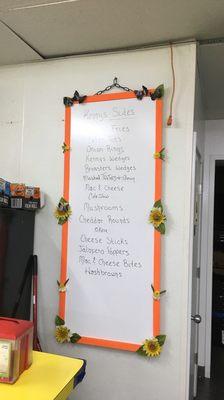 Kennys Sides
Fries
Onion Rings
Kennys Wedges
Roasters Wedges
Mac & Cheese
Cole Slaw
Mushrooms
Cheddar Rounds
Okra
Cheese Sticks
Jalapeno Poppers
Mac & Cheese Bites
Hashbrowns